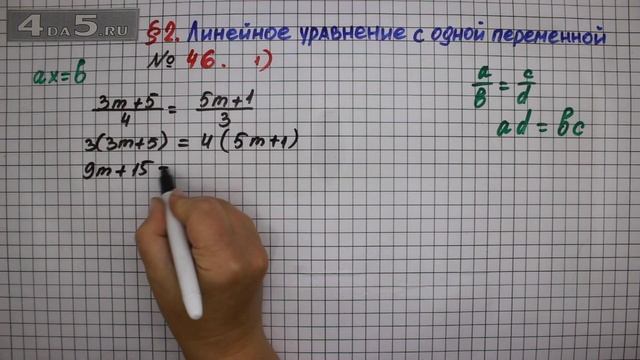 4DA5.RU
§2. Линейное уравнение с одной переменной
№ 46. 1)
ax=b
a/b = c/d
(3m+5)/4 = (5m+1)/3
ad=bc
3(3m+5) = 4(5m+1)
9m+15 =